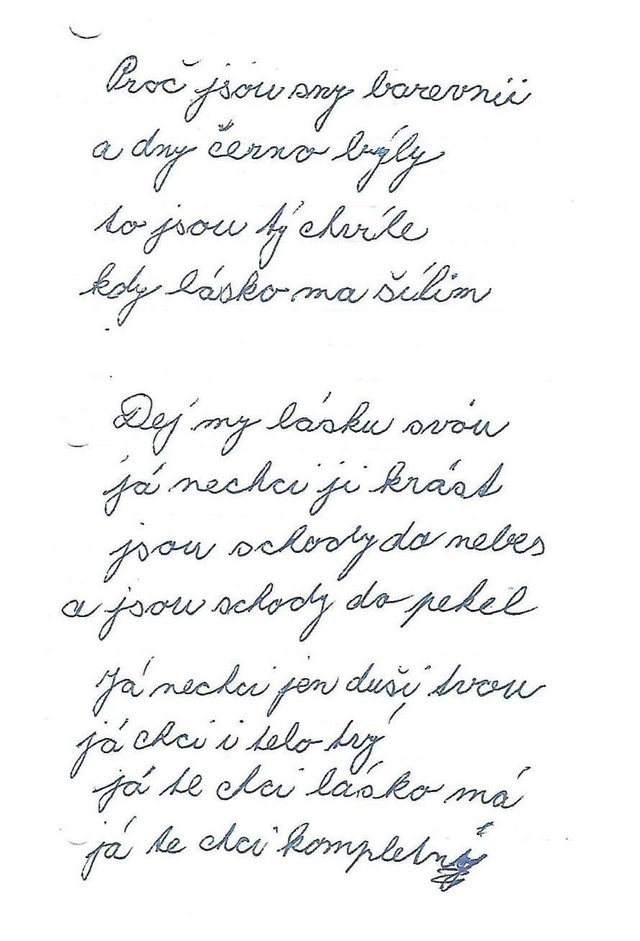 Proč jsou sny barevníi
a dny černo býly
to jsou tý chvíle
kdy lásko ma šílim
Dej my lásku svóu
já nechci ji krást
jsou schody do nebes
a jsou schody do pekel
Já nechci jen duší tvou
já chci i telo tvý
já te chci lásko má
já te chci kompletní